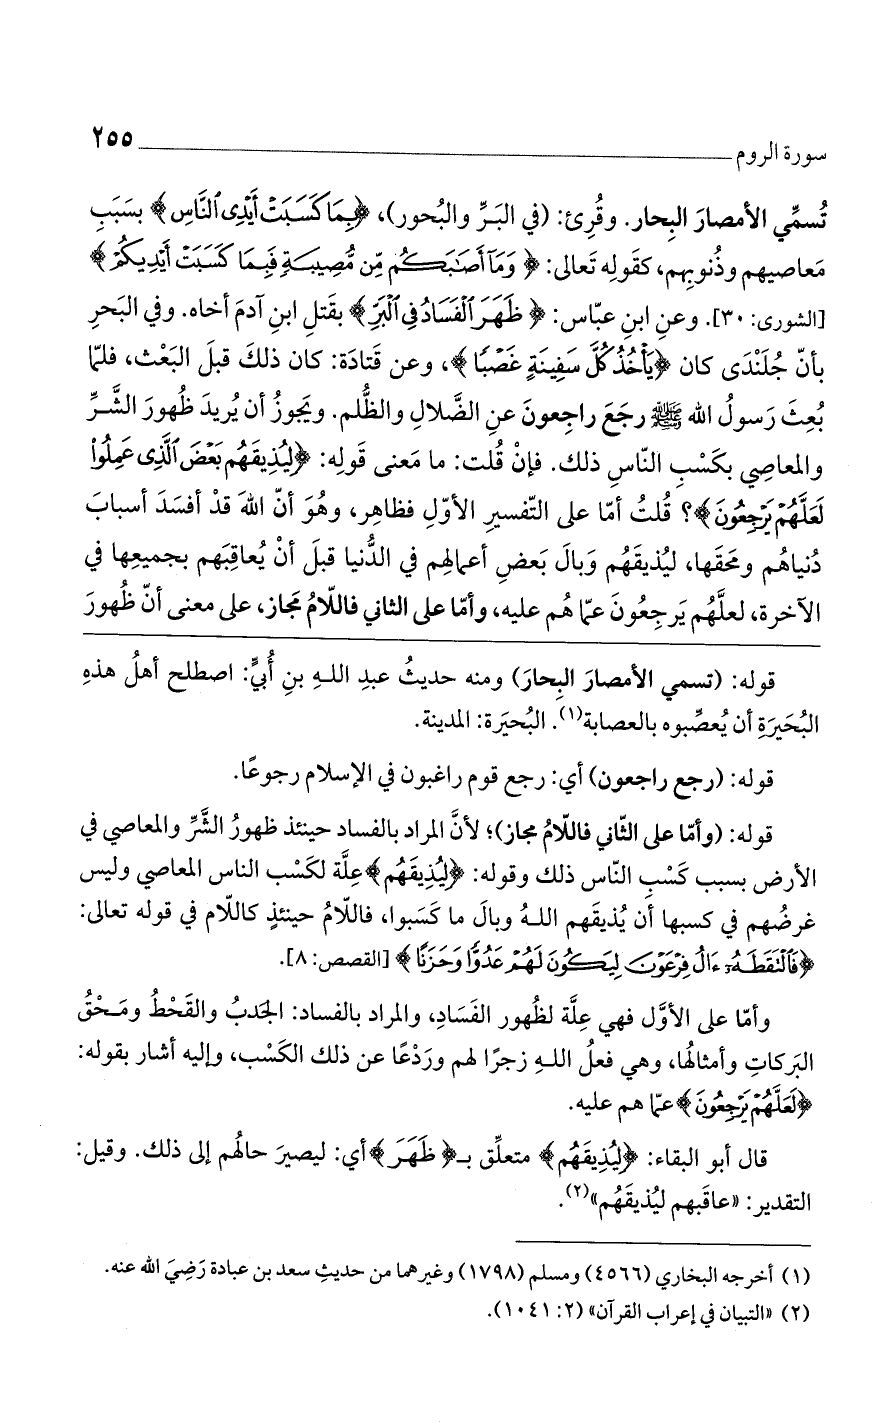 سورة الروم ٢٥٥
تُسمِّي الأمصارَ البِحار. وقُرِئ: (في البَرِّ والبُحور)، ﴿بِمَا كَسَبَتْ أَيْدِى ٱلنَّاسِ﴾ بسَبَبِ
مَعاصيهم وذُنوبِهم، كقَولِه تَعالى: ﴿وَمَآ أَصَٰبَكُم مِّن مُّصِيبَةٍ فَبِمَا كَسَبَتْ أَيْدِيكُمْ﴾
[الشورى: ٣٠]. وعنِ ابنِ عبّاس: ﴿ظَهَرَ ٱلْفَسَادُ فِى ٱلْبَرِّ﴾ بقَتلِ ابنِ آدمَ أخاه. وفي البَحرِ
بأنّ جُلَنْدَى كان ﴿يَأْخُذُ كُلَّ سَفِينَةٍ غَصْبًا﴾، وعن قَتادَة: كان ذلكَ قبلَ البَعْث، فلمّا
بُعِثَ رَسولُ الله ﷺ رجَعَ راجِعونَ عنِ الضَّلالِ والظُّلم. ويَجوزُ أن يُريدَ ظُهورَ الشَّرِّ
والمعاصِي بكَسْبِ النّاسِ ذلك. فإنْ قُلت: ما مَعنى قَولِه: ﴿لِيُذِيقَهُم بَعْضَ ٱلَّذِى عَمِلُوا۟
لَعَلَّهُمْ يَرْجِعُونَ﴾؟ قُلتُ أمّا على التّفسيرِ الأوّلِ فظاهِر، وهُو أنّ اللهَ قدْ أفسَدَ أسبابَ
دُنياهُم ومحَقَها، ليُذيقَهُم وَبالَ بَعضِ أعمالِهم في الدُّنيا قبلَ أنْ يُعاقِبَهم بجميعِها في
الآخرة، لعلَّهُم يَرجِعُونَ عمّا هُم عليه، وأمّا على الثاني فاللّامُ مجَاز، على معنى أنّ ظُهورَ
قوله: (تسمي الأمصارَ البِحارَ) ومنه حديثُ عبدِ اللـهِ بنِ أُبيٍّ: اصطلح أهلُ هذهِ
البُحَيرَةِ أن يُعصِّبوه بالعصابة(١). البُحيَرَة: المدينة.
قوله: (رجع راجعون) أي: رجع قوم راغبون في الإسلام رجوعًا.
قوله: (وأمّا على الثّاني فاللّامُ مجاز)؛ لأنَّ المراد بالفساد حينئذ ظهورُ الشَّرِّ والمعاصي في
الأرض بسبب كَسْبِ النّاس ذلك وقوله: ﴿لِيُذِيقَهُم﴾ عِلّة لكَسْب الناس المعاصي وليس
غرضُهم في كسبها أن يُذيقَهم اللـهُ وبالَ ما كَسَبوا، فاللّامُ حينئذٍ كاللّام في قوله تعالى:
﴿فَٱلْتَقَطَهُۥٓ ءَالُ فِرْعَوْنَ لِيَكُونَ لَهُمْ عَدُوًّا وَحَزَنًا﴾ [القصص: ٨].
وأمّا على الأوَّل فهي عِلّة لظُهور الفَسَادِ، والمراد بالفساد: الجَدبُ والقَحْطُ ومَـحْقُ
البَركاتِ وأمثالُها، وهي فعلُ اللـهِ زجرًا لهم ورَدْعًا عن ذلك الكَسْب، وإليه أشار بقوله:
﴿لَعَلَّهُمْ يَرْجِعُونَ﴾ عمّا هم عليه.
قال أبو البقاء: ﴿لِيُذِيقَهُم﴾ متعلِّق بـ﴿ظَهَرَ﴾ أي: ليصيرَ حالُهم إلى ذلك. وقيل:
التقدير: «عاقَبهم ليُذيقَهُم»(٢).
(١) أخرجه البخاري (٤٥٦٦) ومسلم (١٧٩٨) وغيرهما من حديثِ سعد بن عبادة رَضِيَ الله عنه.
(٢) «التبيان في إعراب القرآن» (٢: ١٠٤١).